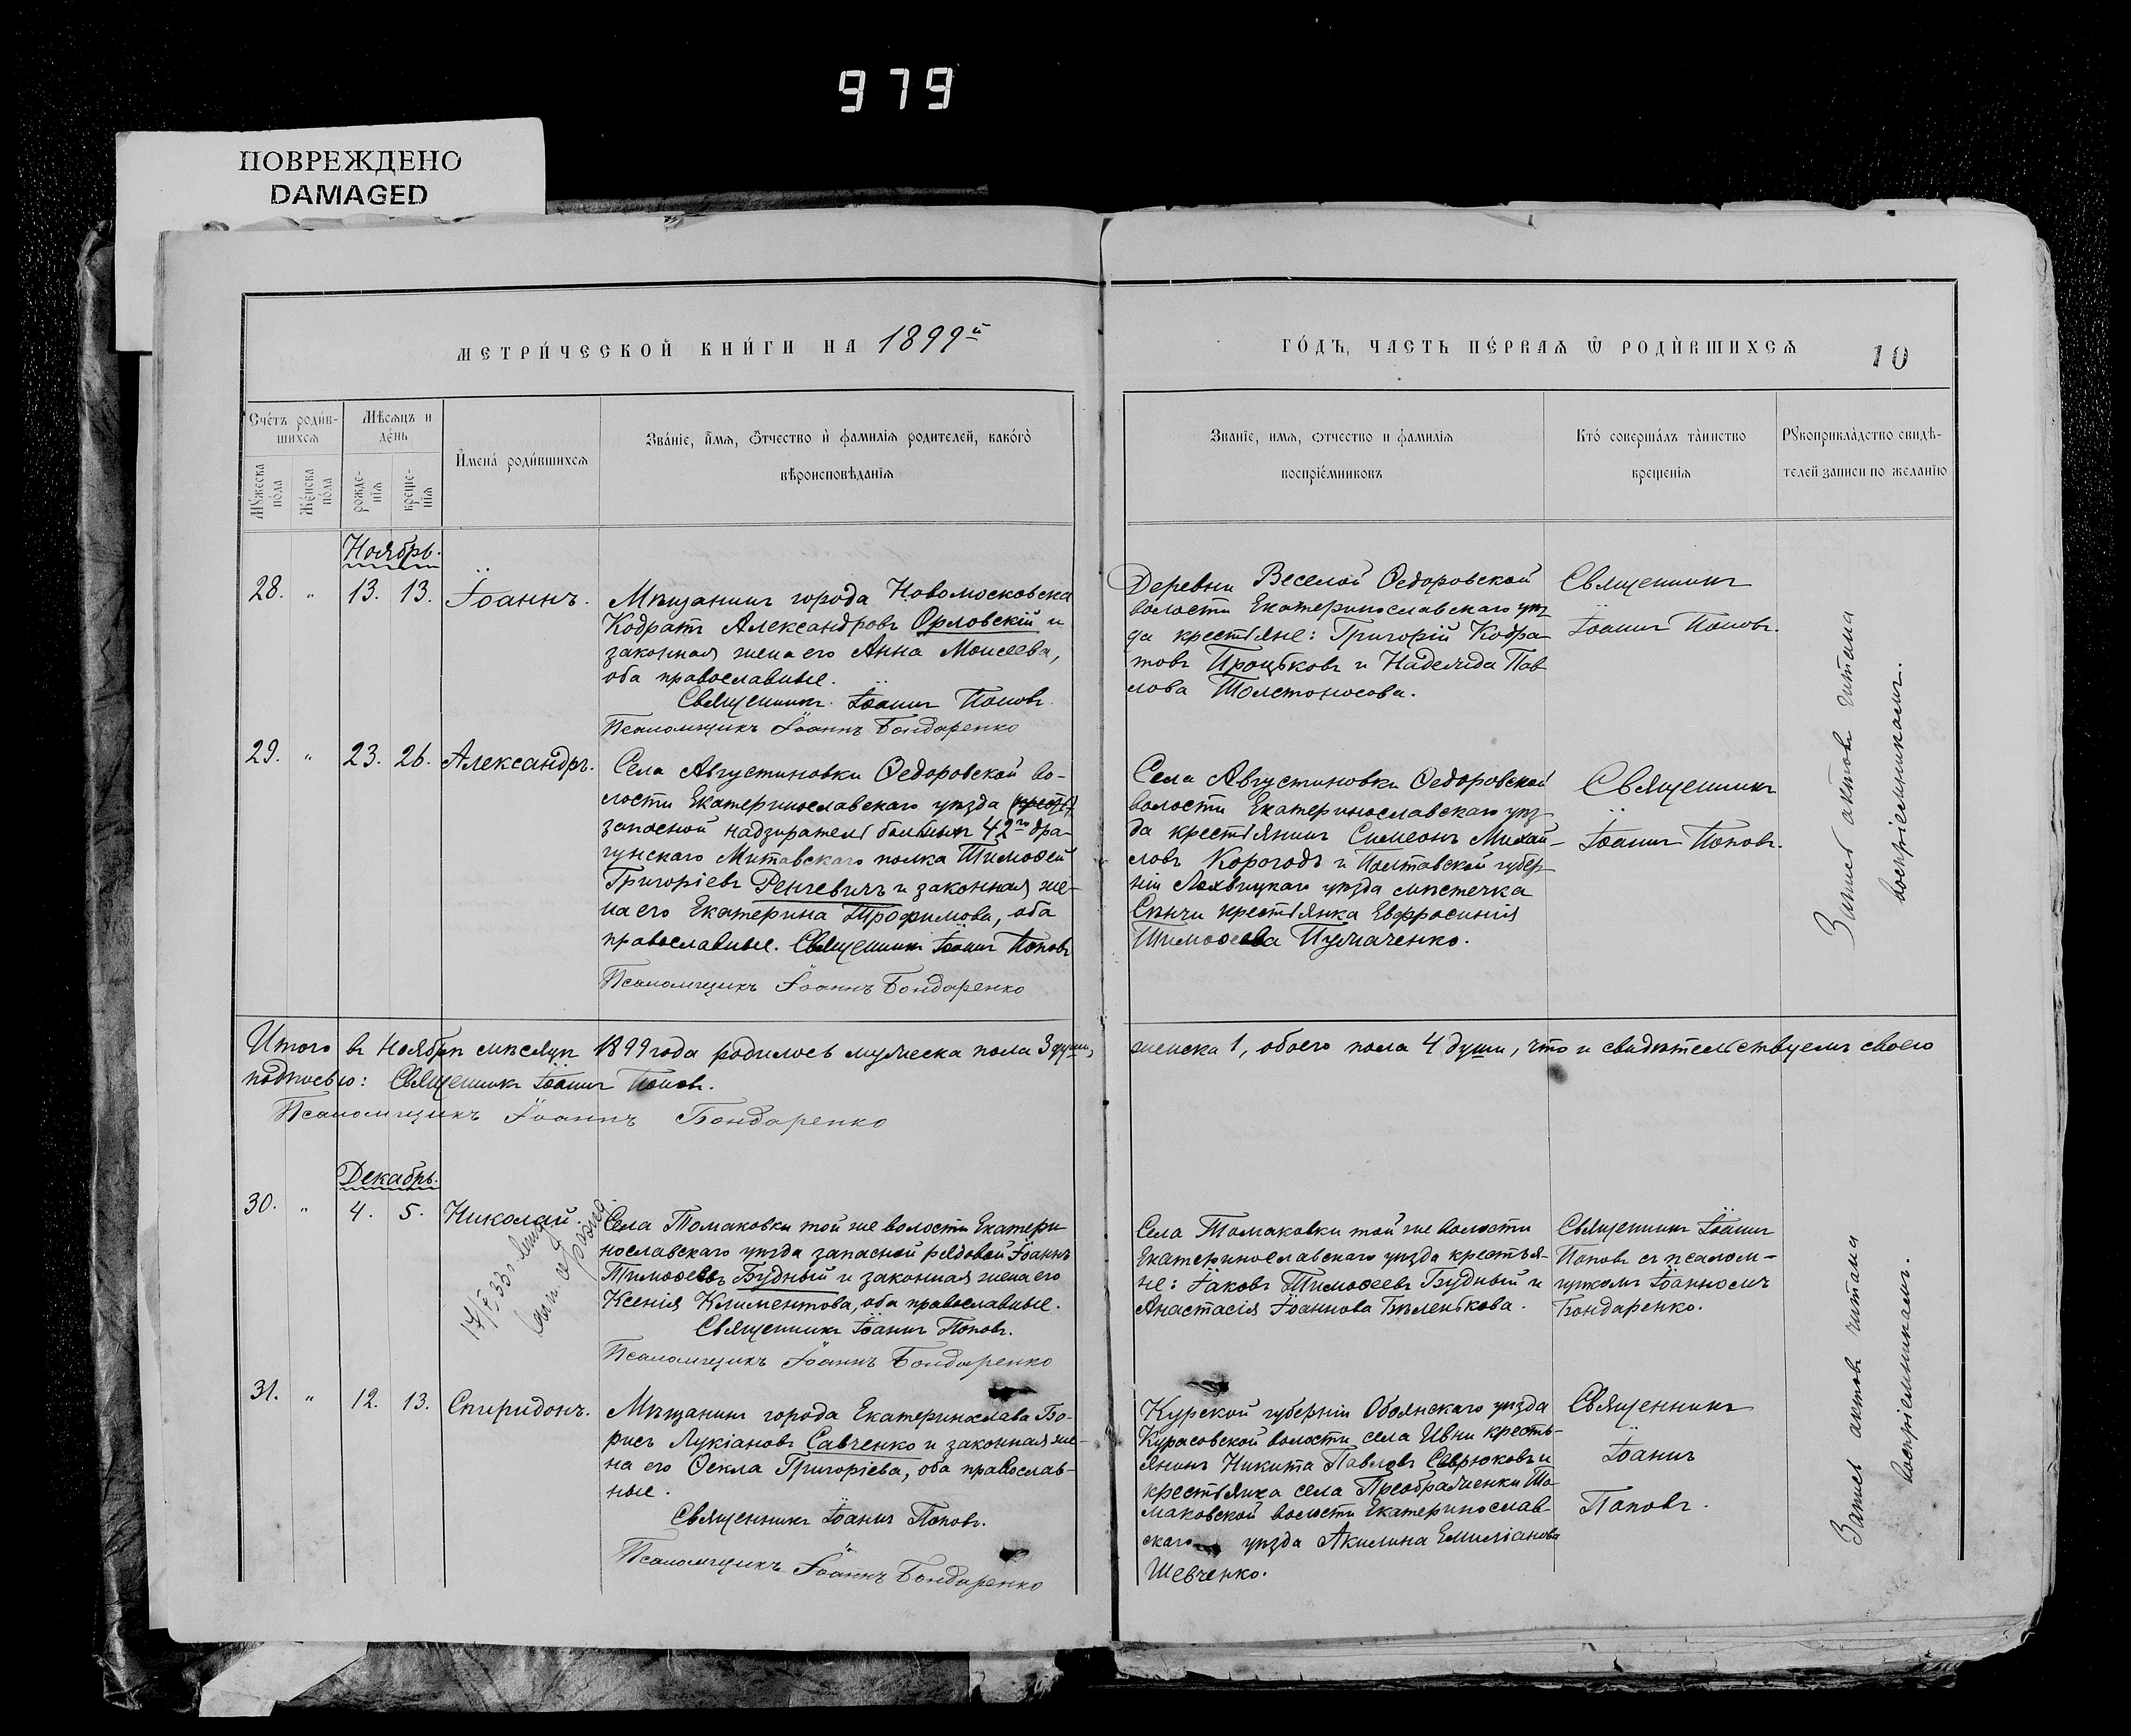 979
ПОВРЕЖДЕНО
DAMAGED
МЕТРИ́ЧЕСКОЙ КНИ́ГИ НА 1899й
ГО́ДЪ, ЧАСТЬ ПЕ́РВАѦ Ѽ РОДИ́ВШИХСѦ
10
Сче́тъ роди́в-
шихсѧ
Мꙋ́жеска
по́ла
Же́нска
по́ла
Мѣ́сѧцъ и
де́нь
рожде-
нїѧ
креще-
нїѧ
Имена́ роди́вшихсѧ
Зва́нїе, и́мѧ, ѻ́тчество и̓ фами́лїѧ роди́телей, како́гѡ
вѣроисповѣ́данїѧ
Званїе, имѧ, ѻтчество и фамилїѧ
воспрїе́мниковъ
Кто́ соверша́лъ та́инство
креще́нїѧ
Рꙋкоприкла́дство свидѣ́-
телей записи по жела́нїю
Ноябрь.
28. " 13. 13. Іоаннъ.
Мѣщанинъ города Новомосковска
Кодратъ Александровъ Орловскій и
законная жена его Анна Моисеева,
оба православные.
Священникъ Іоаннъ Поповъ.
Псаломщикъ Іоаннъ Бондаренко
Деревни Веселой Ѳедоровской
волости Екатеринославскаго уѣз
да крестьяне: Григорій Кодра-
товъ Процьковъ и Надежда Пав
лова Толстоносова.
Священникъ
Іоаннъ Поповъ.
29. " 23. 26. Александръ.
Села Августиновки Ѳедоровской во-
лости Екатеринославскаго уѣзда
запасной надзиратель больныхъ 42го дра-
гунскаго Митавскаго полка Тимоѳей
Григоріевъ Ренгевичъ и законная же-
на его Екатерина Трофимова, оба
православные. Священникъ Іоаннъ Поповъ
Псаломщикъ Іоаннъ Бондаренко
Села Августиновки Ѳедоровской
волости Екатеринославскаго уѣз-
да крестьянинъ Симеонъ Михай-
ловъ Корогодъ и Полтавской губер-
ніи Лохвицкаго уѣзда мѣстечка
Сѣнчи крестьянка Евфросинія
Тимоѳеева Пумаченко.
Священникъ
Іоаннъ Поповъ.
Запись актовъ читана
воспріемникамъ.
Итого въ Ноябрѣ мѣсяцѣ 1899 года родилось мужеска пола 3 души, женска 1, обоего пола 4 души, что и свидѣтельствуемъ своею
подписью: Священникъ Іоаннъ Поповъ.
Псаломщикъ Іоаннъ Бондаренко
Декабрь.
30. " 4. 5. Николай.
17/V 33 г.
Села Томаковки той же волости Екатери
нославскаго уѣзда запасной рядовой Іоаннъ
Тимоѳеевъ Будный и законная жена его
Ксенія Климентова, оба православные.
Священникъ Іоаннъ Поповъ.
Псаломщикъ Іоаннъ Бондаренко
Села Томаковки той же волости
Екатеринославскаго уѣзда крестья-
не: Іаковъ Тимоѳеевъ Будный и
Анастасія Іоаннова Бѣленькова.
Священникъ Іоаннъ
Поповъ съ псалом-
щикомъ Іоанномъ
Бондаренко.
31. " 12. 13. Спиридонъ.
Мѣщанинъ города Екатеринослава Бо-
рисъ Лукіановъ Савченко и законная же-
на его Ѳекла Григоріева, оба православ-
ные.
Священникъ Іоаннъ Поповъ.
Псаломщикъ Іоаннъ Бондаренко
Курской губерніи Обоянскаго уѣзда
Курасовской волости села Ивни кресть-
янинъ Никита Павловъ Севрюковъ и
крестьянка села Преображенки То-
маковской волости Екатеринослав-
скаго уѣзда Акилина Емиліанова
Шевченко.
Священникъ
Іоаннъ
Поповъ.
Запись актовъ читана
воспріемникамъ.